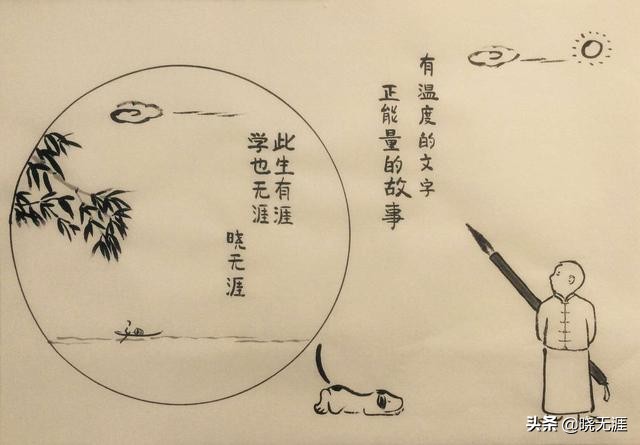 有温度的文字
正能量的故事
此生有涯
学也无涯
晓无涯
头条@晓无涯